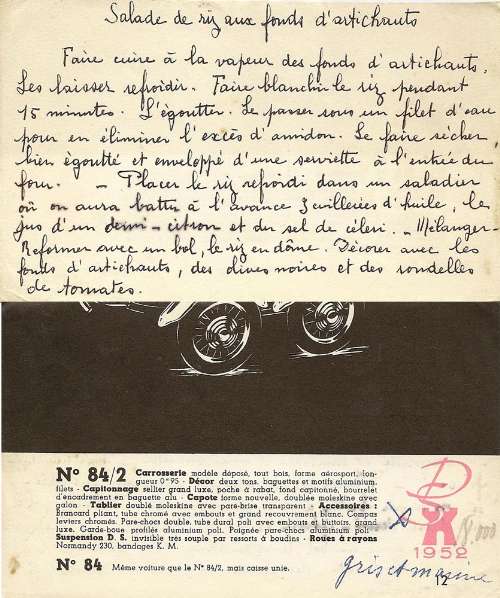 Salade de riz aux fonds d'artichauts
Faire cuire à la vapeur des fonds d'artichauts.
Les laisser refroidir. Faire blanchir le riz pendant
15 minutes. L'égoutter. Le passer sous un filet d'eau
pour en éliminer l'excès d'amidon. Le faire sécher
bien égoutté et enveloppé d'une serviette à l'entrée du
four. - Placer le riz refroidi dans un saladier
où on aura battu à l'avance 3 cuillerées d'huile, le
jus d'un demi-citron et du sel de céleri. - Mélanger-
Reformer avec un bol, le riz en dôme. Décorer avec les
fonds d'artichauts, des olives noires et des rondelles
de tomates.
N° 84/2 Carrosserie modèle déposé, tout bois, forme aérosport, lon-
gueur 0m95 - Décor deux tons, baguettes et motifs aluminium.
filets - Capitonnage sellier grand luxe, poche à rabat, fond capitonné, bourrelet
d'encadrement en baguette alu - Capote forme nouvelle, doublée moleskine avec
galon - Tablier doublé moleskine avec pare-brise transparent - Accessoires :
Brancard pliant, tube chromé avec embouts et grand recouvrement blanc. Compas
leviers chromés. Pare-chocs double, tube dural poli avec embouts et buttoirs, grand
luxe. Garde-boue profilés aluminium poli. Poignée pare-chocs aluminium poli
Suspension D. S. invisible très souple par ressorts à boudins - Roues à rayons
Normandy 230, bandages K. M.
D
1952
8.000
N° 84 Même voiture que le N° 84/2, mais caisse unie.
gris et marine
12